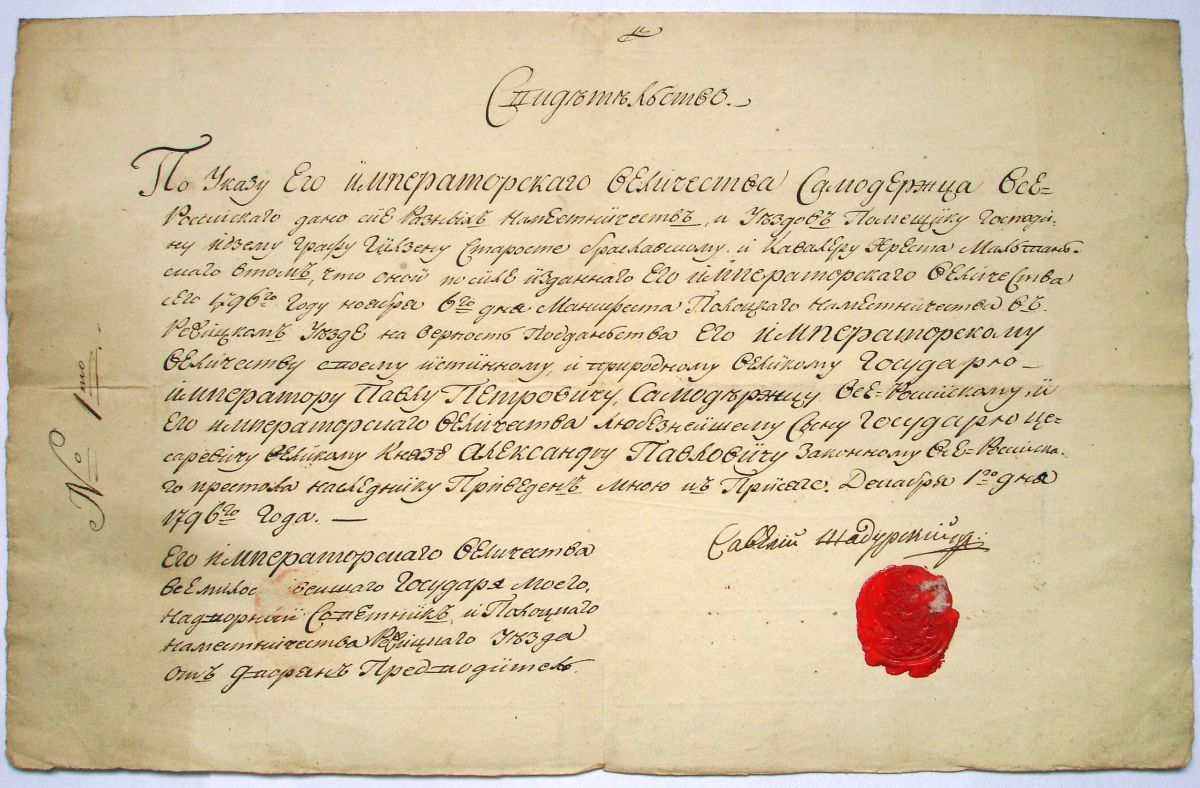 Свидѣтельство.
По Указу Его императорскаго величества Самодержца Все=
Российскаго дано сие разныхъ намѣстничествъ, и Уѣздовъ Помещику Господи=
ну юзефу Графу Гилзену Старосте браславскому, и Кавалеру Креста Мальтинъ=
скаго втомъ, что оной после изданнаго Его императорскаго величества
сего 1796го Году ноября 6го дня Манифеста Полоцкаго намѣстничества въ
Уѣзде на верность Подданства Его императорскому
величеству своему истинному, и природному великому Государю
императору Павлу Петровичу, Самодержцу Все=Российскому, и
Его императорскаго величества любезнейшему Сыну Государю це=
саревичу великому Князю Александру Павловичу Законному все=российска=
го престола наследнику Приведенъ мною къ Присяге. Декабря 1го дня
1796го года.
Его императорскаго величества
Государя моего,
надворный Советникъ, и Полоцкаго
наместничества Уѣзда
отъ дворянъ Предводитель
Шадурский
№ 1